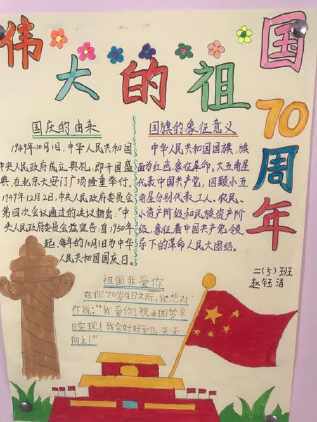 伟大的祖国
70周年
国庆的由来
1949年10月1日,中华人民共和国
中央人民政府成立典礼,即开国盛
典,在北京天安门广场隆重举行。
1949年12月2日,中央人民政府委员会
第四次会议通过的决议
央人民政府委员会宣告:自1950年
起,每年的10月1日为中华
人民共和国国庆日。
国旗的象征意义
中华人民共和国国旗,旗
面为红色,象征革命。大五角星
代表中国共产党,四颗小五
角星分别代表工人、农民、
小资产阶级和民族资产阶
级。象征着中国共产党领
导下的革命人民大团结。
二(5)班
祖国我爱你
在你70岁生日之际,
作成:"我爱你,祝
实现!我会好好学习,天天
向上!"